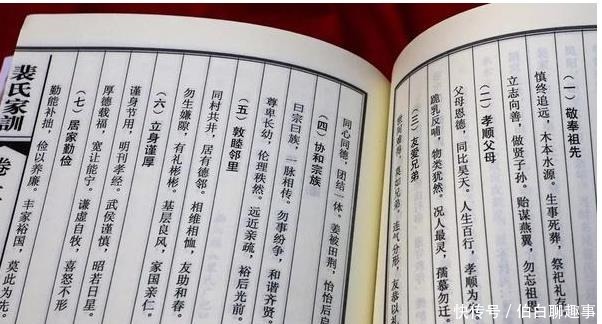 (一)敬奉祖先
慎终追远，木本水源。生事死葬，祭祀礼
立志向善，做贤子孙。贻谋燕翼，勿忘祖
(二)孝顺父母
父母恩德，同比昊天。人生百行，孝顺为
跪乳反哺，物类犹然。况人最灵，孺慕勿迁
(三)友爱兄弟
难得，莫如兄弟。连气分形，友恭以礼
同心同德，团结一体。姜被田荆，怡怡后启
(四)协和宗族
曰宗曰族，一脉相传。勿事纷争，和谐齐贤
尊卑长幼，伦理秩然。远近亲疏，裕后光前。
(五)敦睦邻里
同村共井，居有德邻。相维相恤，友助和春
勿生嫌隙，有礼彬彬。基层良风，家国亲仁。
(六)立身谨厚
谨身节用，明刊孝经。武侯谨慎，昭若日星。
厚德载福，宽让能宁。谦虚自牧，喜怒不形
(七)居家勤俭
勤能补拙，俭以养廉。丰家裕国，莫此为先
裴氏家訓 卷
快传号／伯白聊趣事